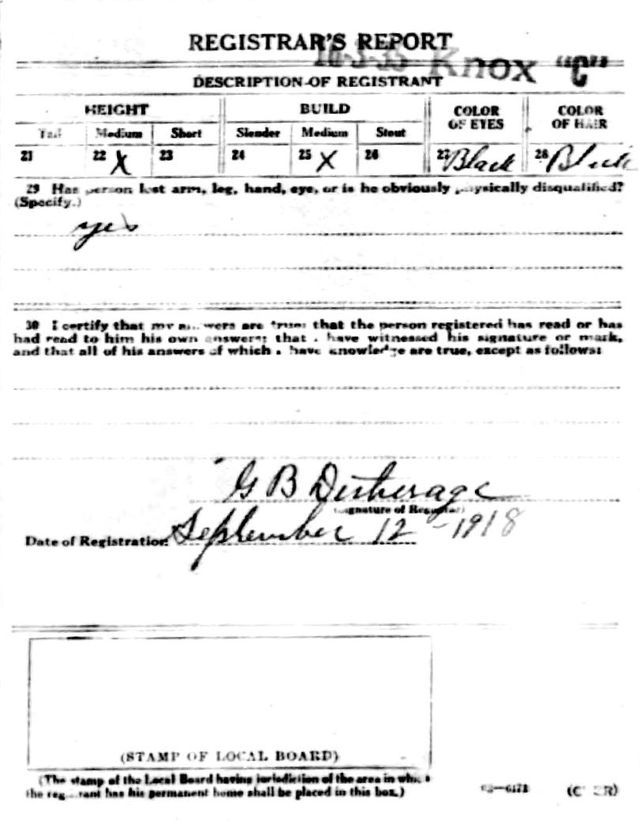 REGISTRAR'S REPORT
16-3-35 Knox "C"
DESCRIPTION OF REGISTRANT
HEIGHT BUILD COLOR OF EYES COLOR OF HAIR
Tall Medium Short Slender Medium Stout
21 22 X 23 24 25 X 26 27 Black 28 Black
29 Has person lost arm, leg, hand, eye, or is he obviously physically disqualified?
(Specify.)
yes
30 I certify that my answers are true; that the person registered has read or has
had read to him his own answers; that I have witnessed his signature or mark,
and that all of his answers of which I have knowledge are true, except as follows:
G B Ditherage
(Signature of Registrar)
Date of Registration September 12 - 1918
(STAMP OF LOCAL BOARD)
(The stamp of the Local Board having jurisdiction of the area in which
the registrant has his permanent home shall be placed in this box.)
(OVER)